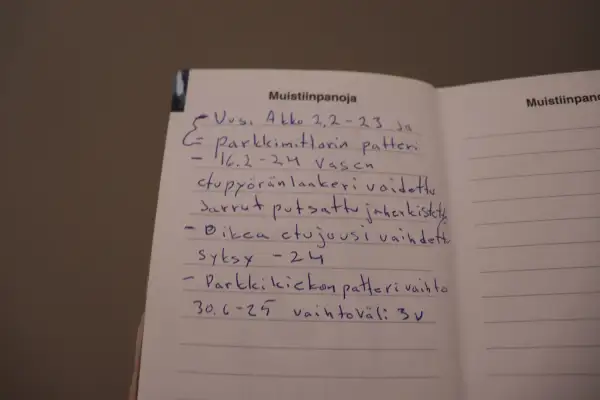 Muistiinpanoja
Uusi Akku 2,2-23 Ja
parkkimittarin patteri
- 16.2-24 Vasen
etupyöränlaakeri voideltu
Jarrut putsattu ja herkistelty
- Oikea etujousi vaihdett
syksy - 24
- Parkkikiekon patteri vaihto
30.6-25 vaihtoväli 3v
Muistiinpan